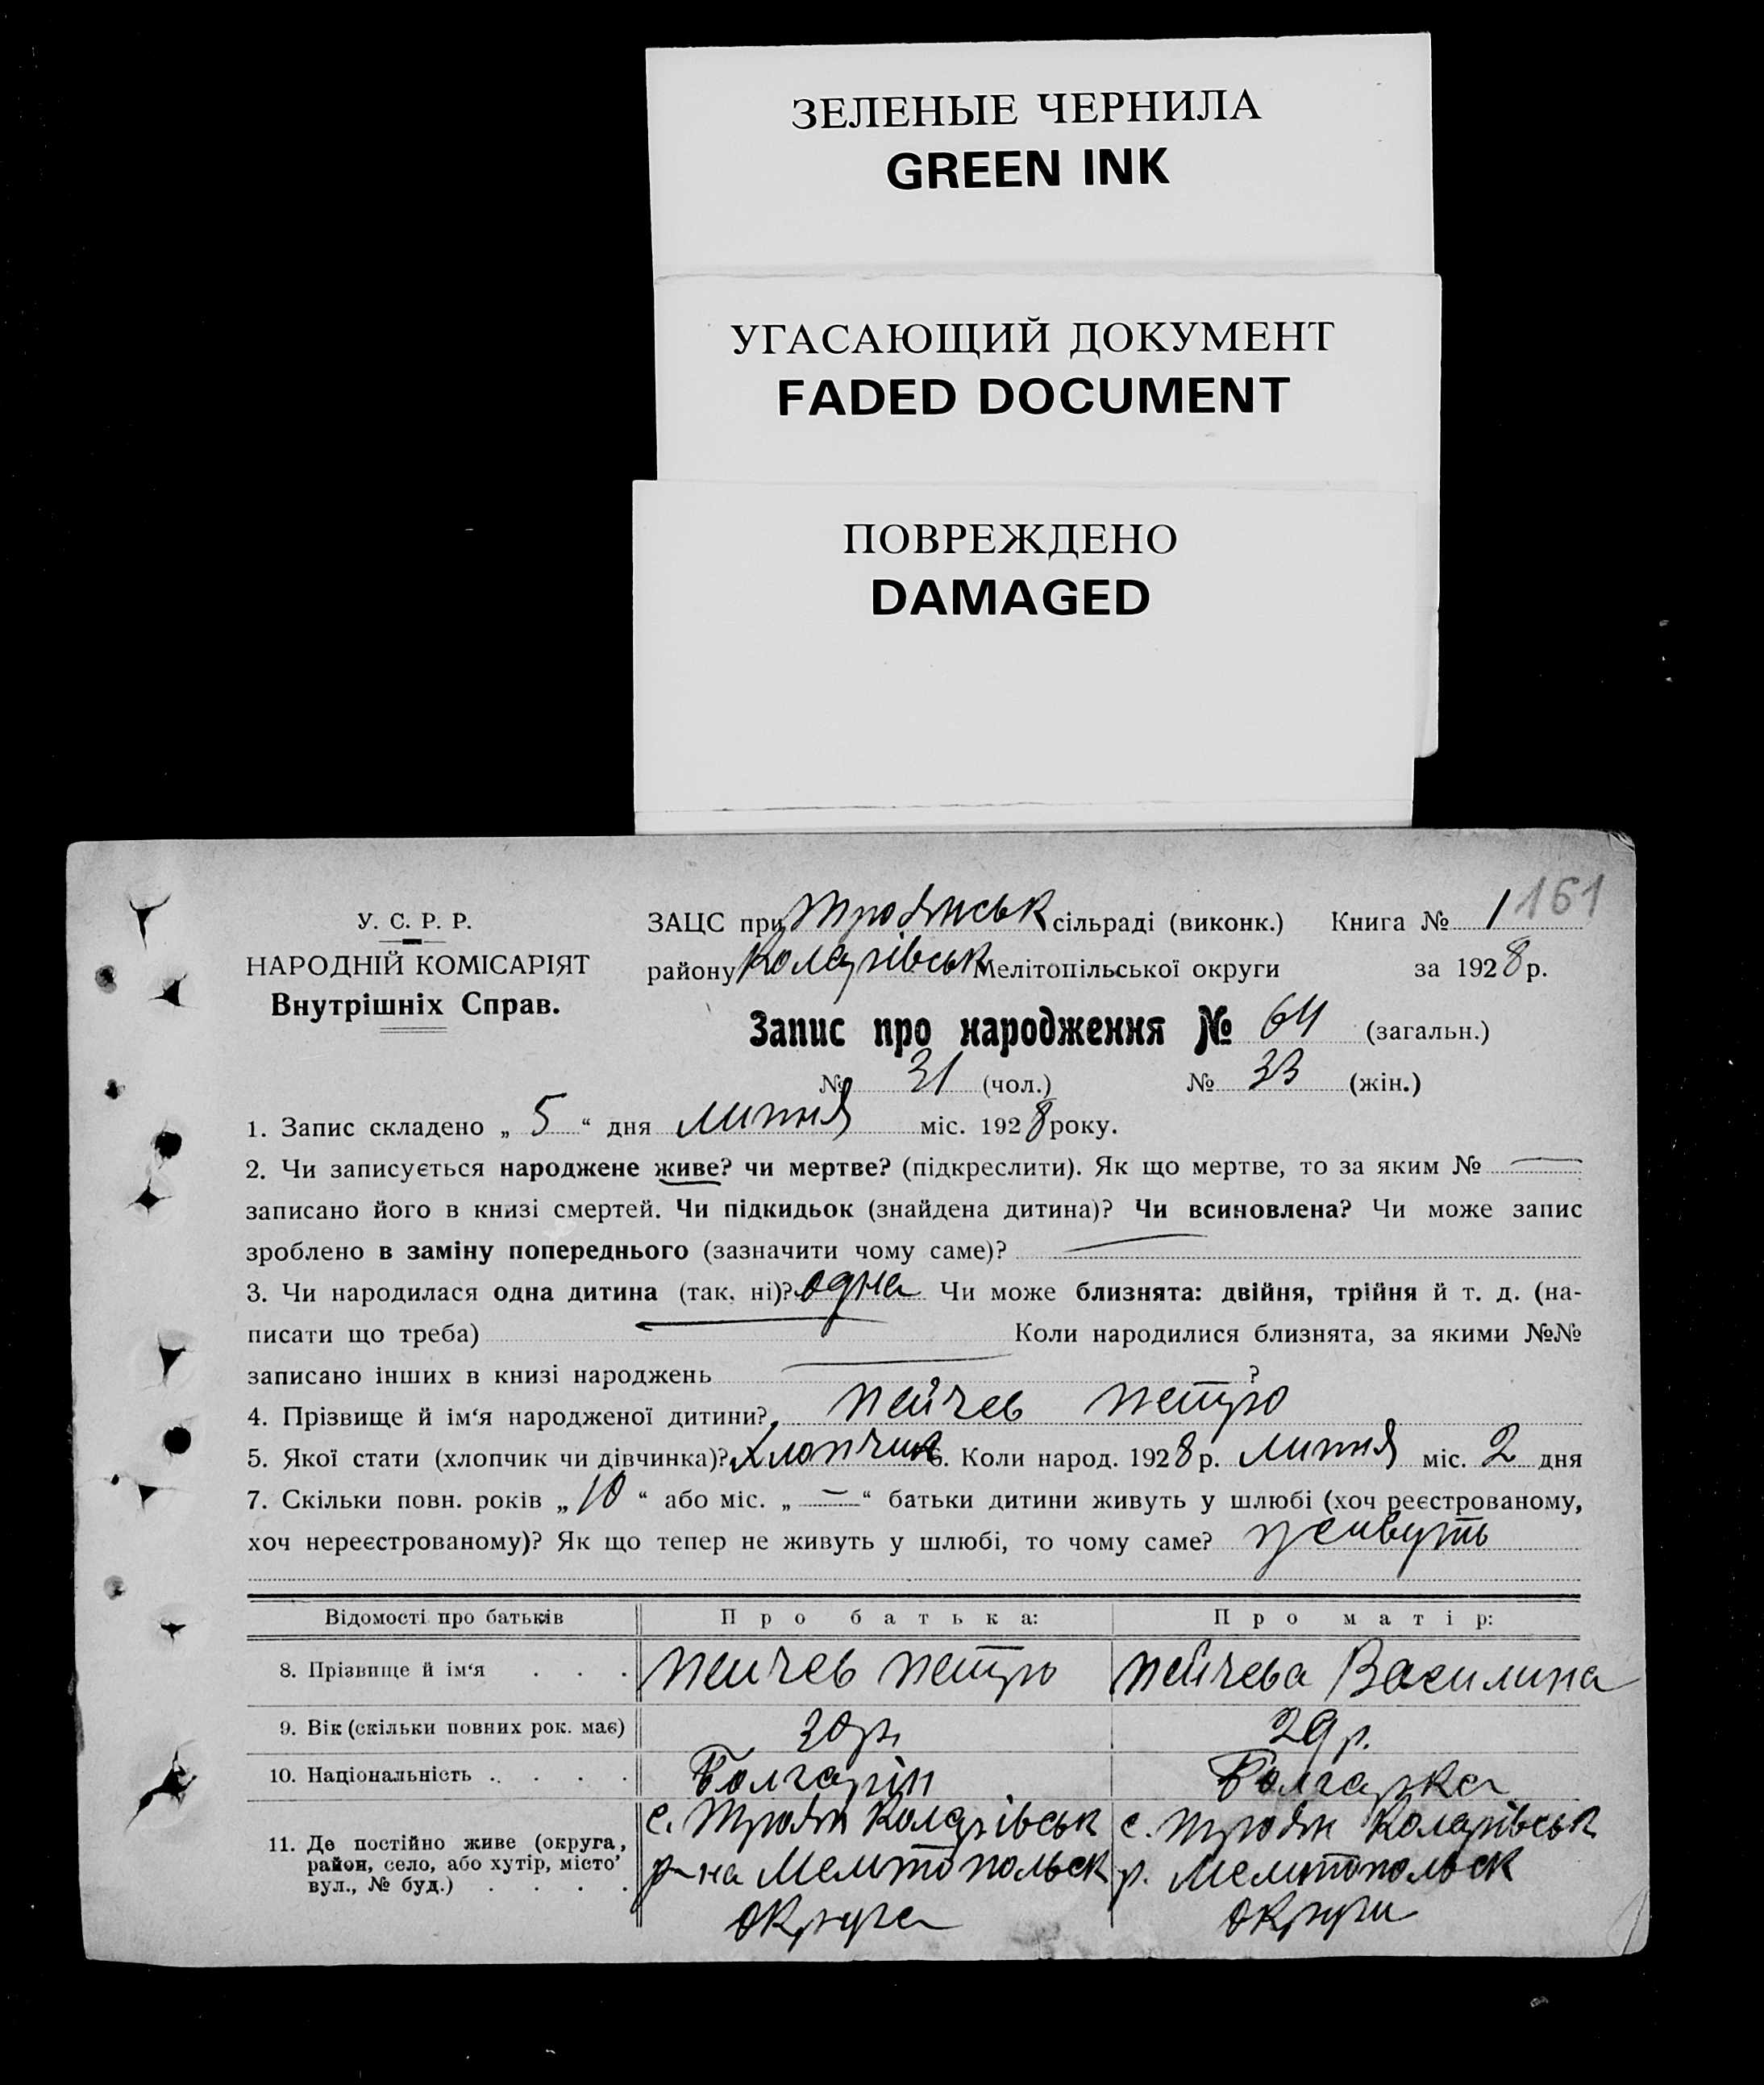 ЗЕЛЕНЫЕ ЧЕРНИЛА
GREEN INK
УГАСАЮЩИЙ ДОКУМЕНТ
FADED DOCUMENT
ПОВРЕЖДЕНО
DAMAGED
161
У. С. Р. Р.
НАРОДНІЙ КОМІСАРІЯТ
Внутрішніх Справ.
ЗАЦС при Троянськ сільраді (виконк.) Книга № 1
району Коларівськ Мелітопільської округи за 1928 р.
Запис про народження № 64 (загальн.)
№ 31 (чол.) № 33 (жін.)
1. Запис складено „ 5 “ дня липня міс. 1928 року.
2. Чи записується народжене живе? чи мертве? (підкреслити). Як що мертве, то за яким № —
записано його в книзі смертей. Чи підкидьок (знайдена дитина)? Чи всиновлена? Чи може запис
зроблено в заміну попереднього (зазначити чому саме)? —
3. Чи народилася одна дитина (так, ні)? одна Чи може близнята: двійня, трійня й т. д. (на-
писати що треба) — Коли народилися близнята, за якими №№
записано інших в книзі народжень — ?
4. Прізвище й ім‘я народженої дитини? Пейчев Петро
5. Якої стати (хлопчик чи дівчинка)? Хлопчик 6. Коли народ. 1928 р. липня міс. 2 дня
7. Скільки повн. років „ 10 “ або міс. „ — “ батьки дитини живуть у шлюбі (хоч реєстрованому,
хоч нереєстрованому)? Як що тепер не живуть у шлюбі, то чому саме? живуть
Відомості про батьків Про батька: Про матір:
8. Прізвище й ім‘я . . . Пейчев Петро Пейчева Василина
9. Вік (скільки повних рок. має) 30 р. 29 р.
10. Національність . . . . Болгарін Болгарка
11. Де постійно живе (округа, район, село, або хутір, місто’ вул., № буд.) . . . .
с. Троян Коларівськ
р-на Мелітопольск
округа
с. Троян Коларівськ
р. Мелітопольск
округи